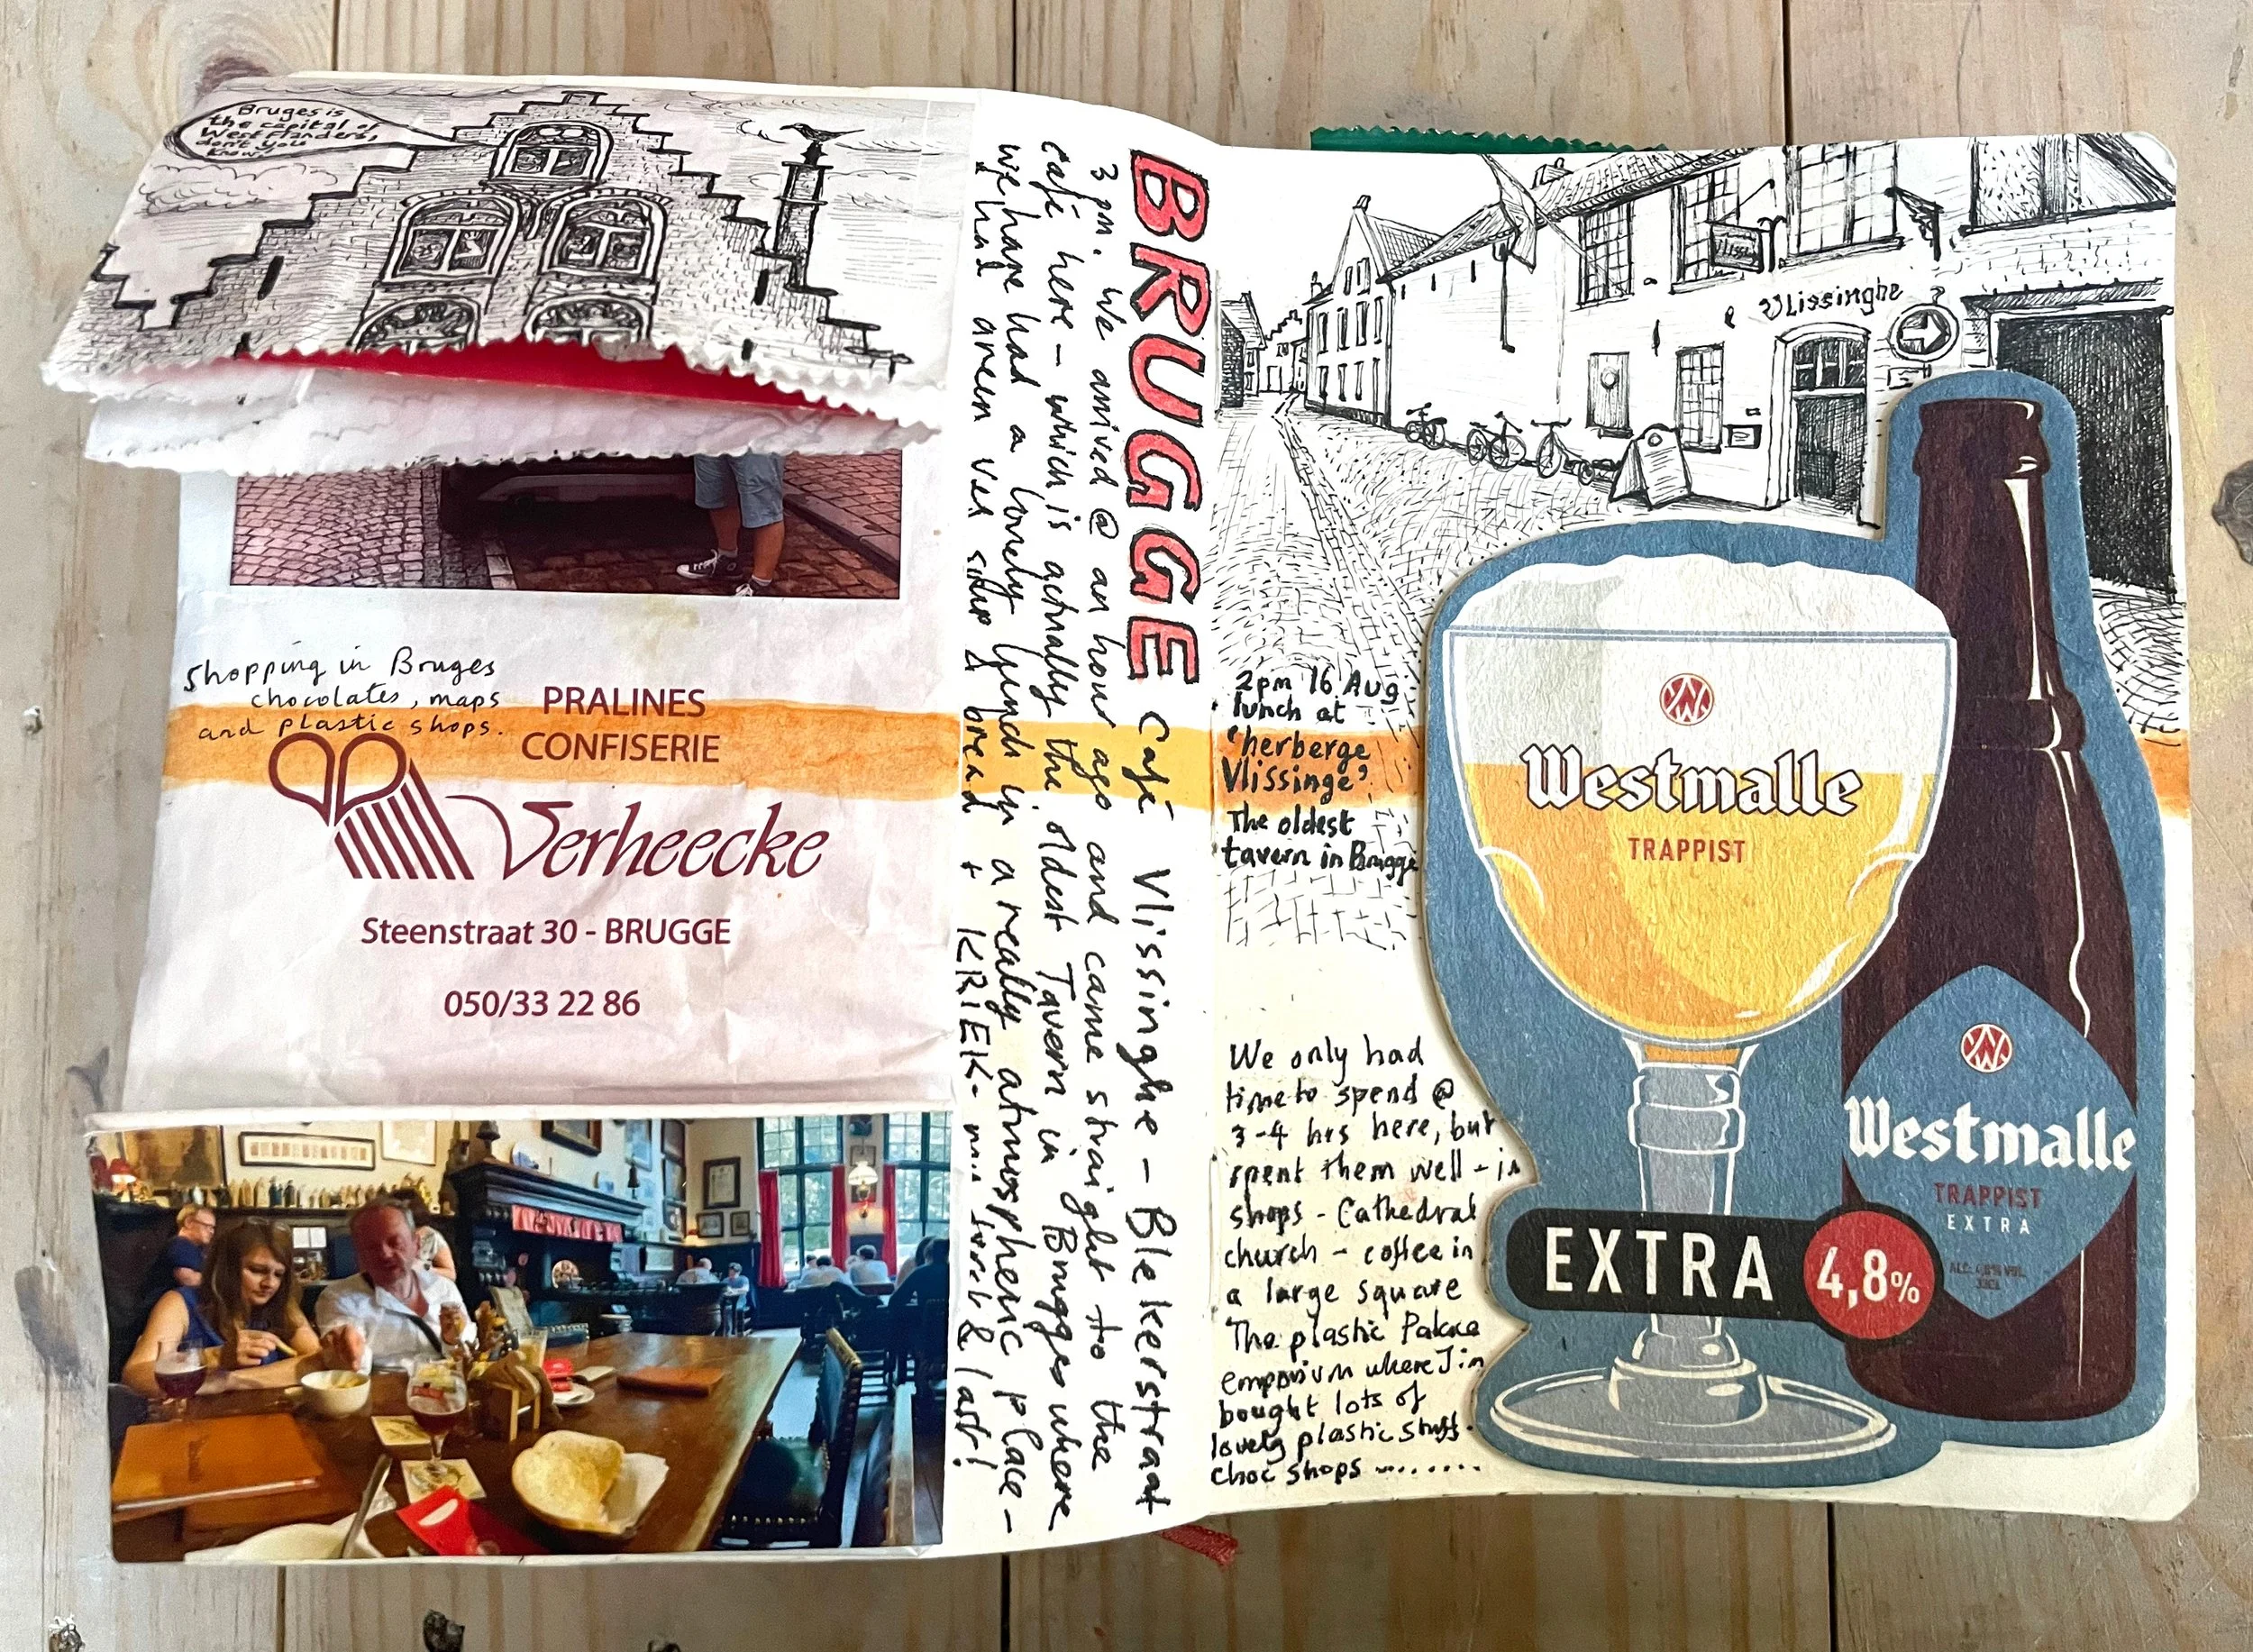 Bruges is
the capital of
West Flanders,
don't you
know.
Shopping in Bruges
chocolates, maps
and plastic shops.
PRALINES
CONFISERIE
Verheecke
Steenstraat 30 - BRUGGE
050/33 22 86
BRUGGE Café Vlissinghe - Blekerstraat
3pm. We arrived @ an hour ago and came straight to the
café here - which is actually the oldest Tavern in Brugges where
we have had a lovely lunch in a really atmospheric place -
we had green veg soup & bread + KRIEK - & last!
Vlissinghe
2pm 16 Aug
lunch at
'herberge
Vlissinge'
The oldest
tavern in Brugge
We only had
time to spend @
3-4 hrs here, but
spent them well - in
shops - Cathedral
church - coffee in
a large square
The plastic
emporium where Jim
bought lots of
lovely plastic stuff.
choc shops .......
Westmalle
TRAPPIST
Westmalle
TRAPPIST
EXTRA
EXTRA 4,8%